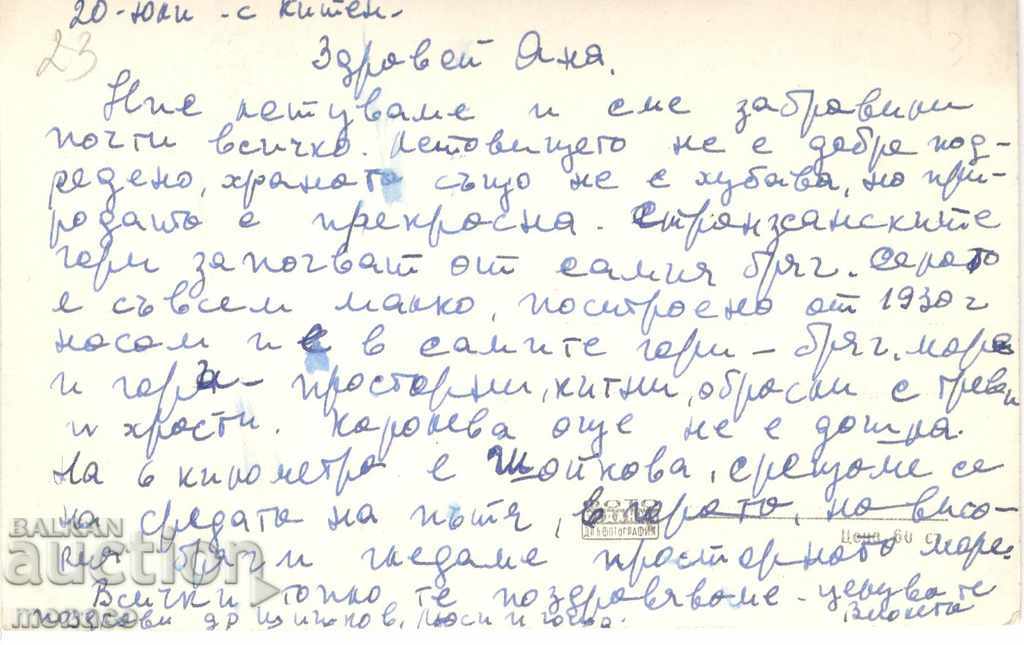 20-юли -с Китен-
23
Здравей Яна.
Ние летуваме и сме забравили
почти всичко. Летовището не е добре под-
редено, храната също не е хубава, но при-
родата е прекрасна. Странджанските
гори започват от самия бряг. Селото
е съвсем малко, построено от 1930 г
насам и е в самите гори – бряг, море
и гора – просторни, китни, обрасли с треви
и храсти. Каролева още не е дошла.
На 6 километра е Шойкова, срещаме се
на средата на пътя, в гората, на висо-
кия бряг и гледаме просторното море.
ДПК ФОТОГРАФИЯ
Цена 60 ст.
Всички топло те поздравяваме - целува те
Виолета
поздрави др , Люси и
BALKAN
auction